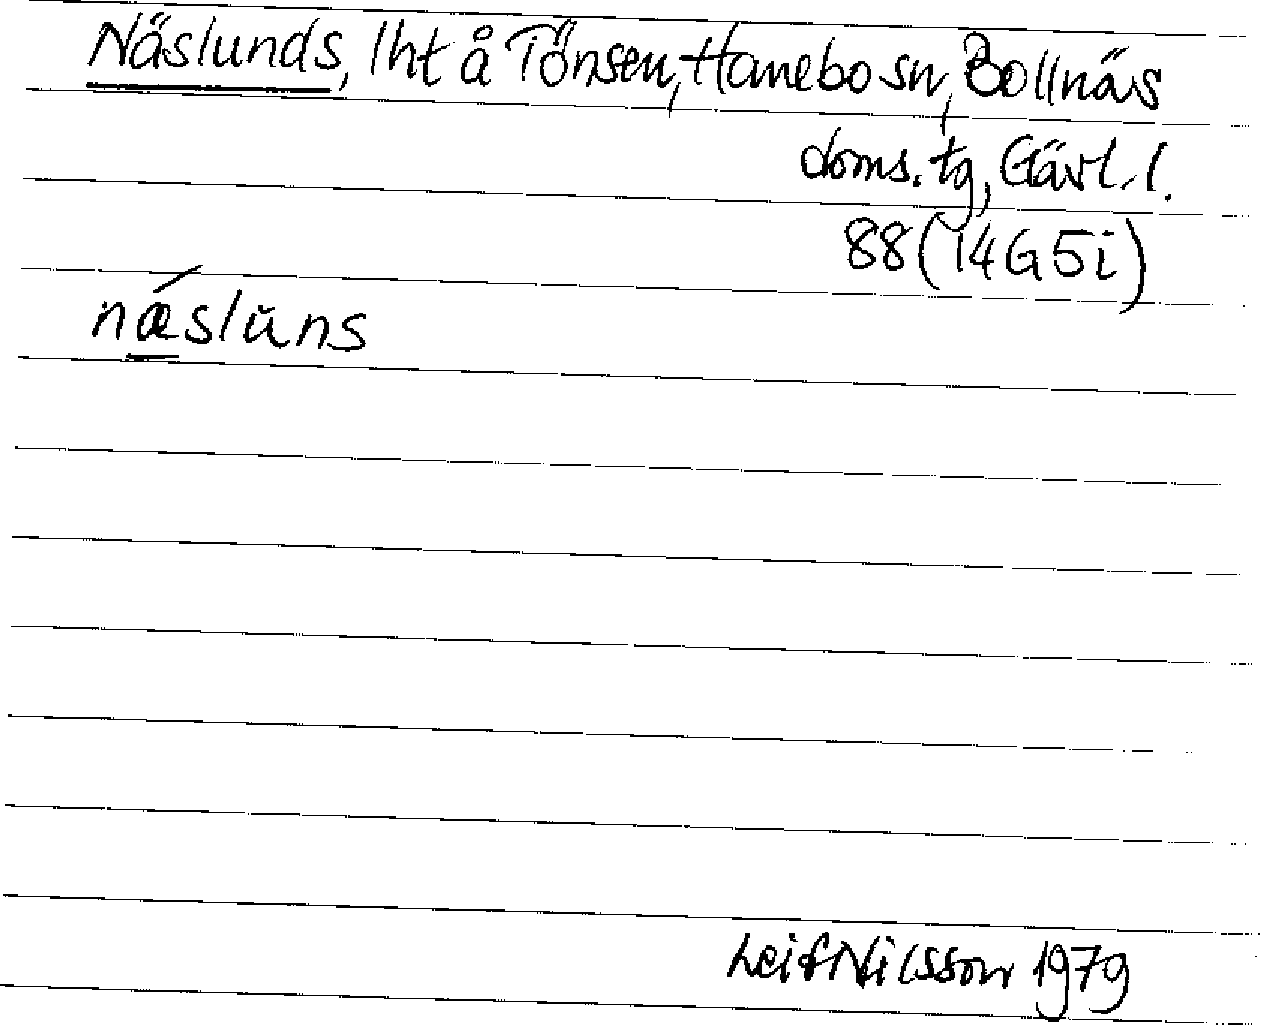 Näslunds, lht å Tönsen, Hanebo sn, Bollnäs
doms. tg, Gävl. l.
88 (14G5i)
nǽslŭns
Leif Nilsson 1979